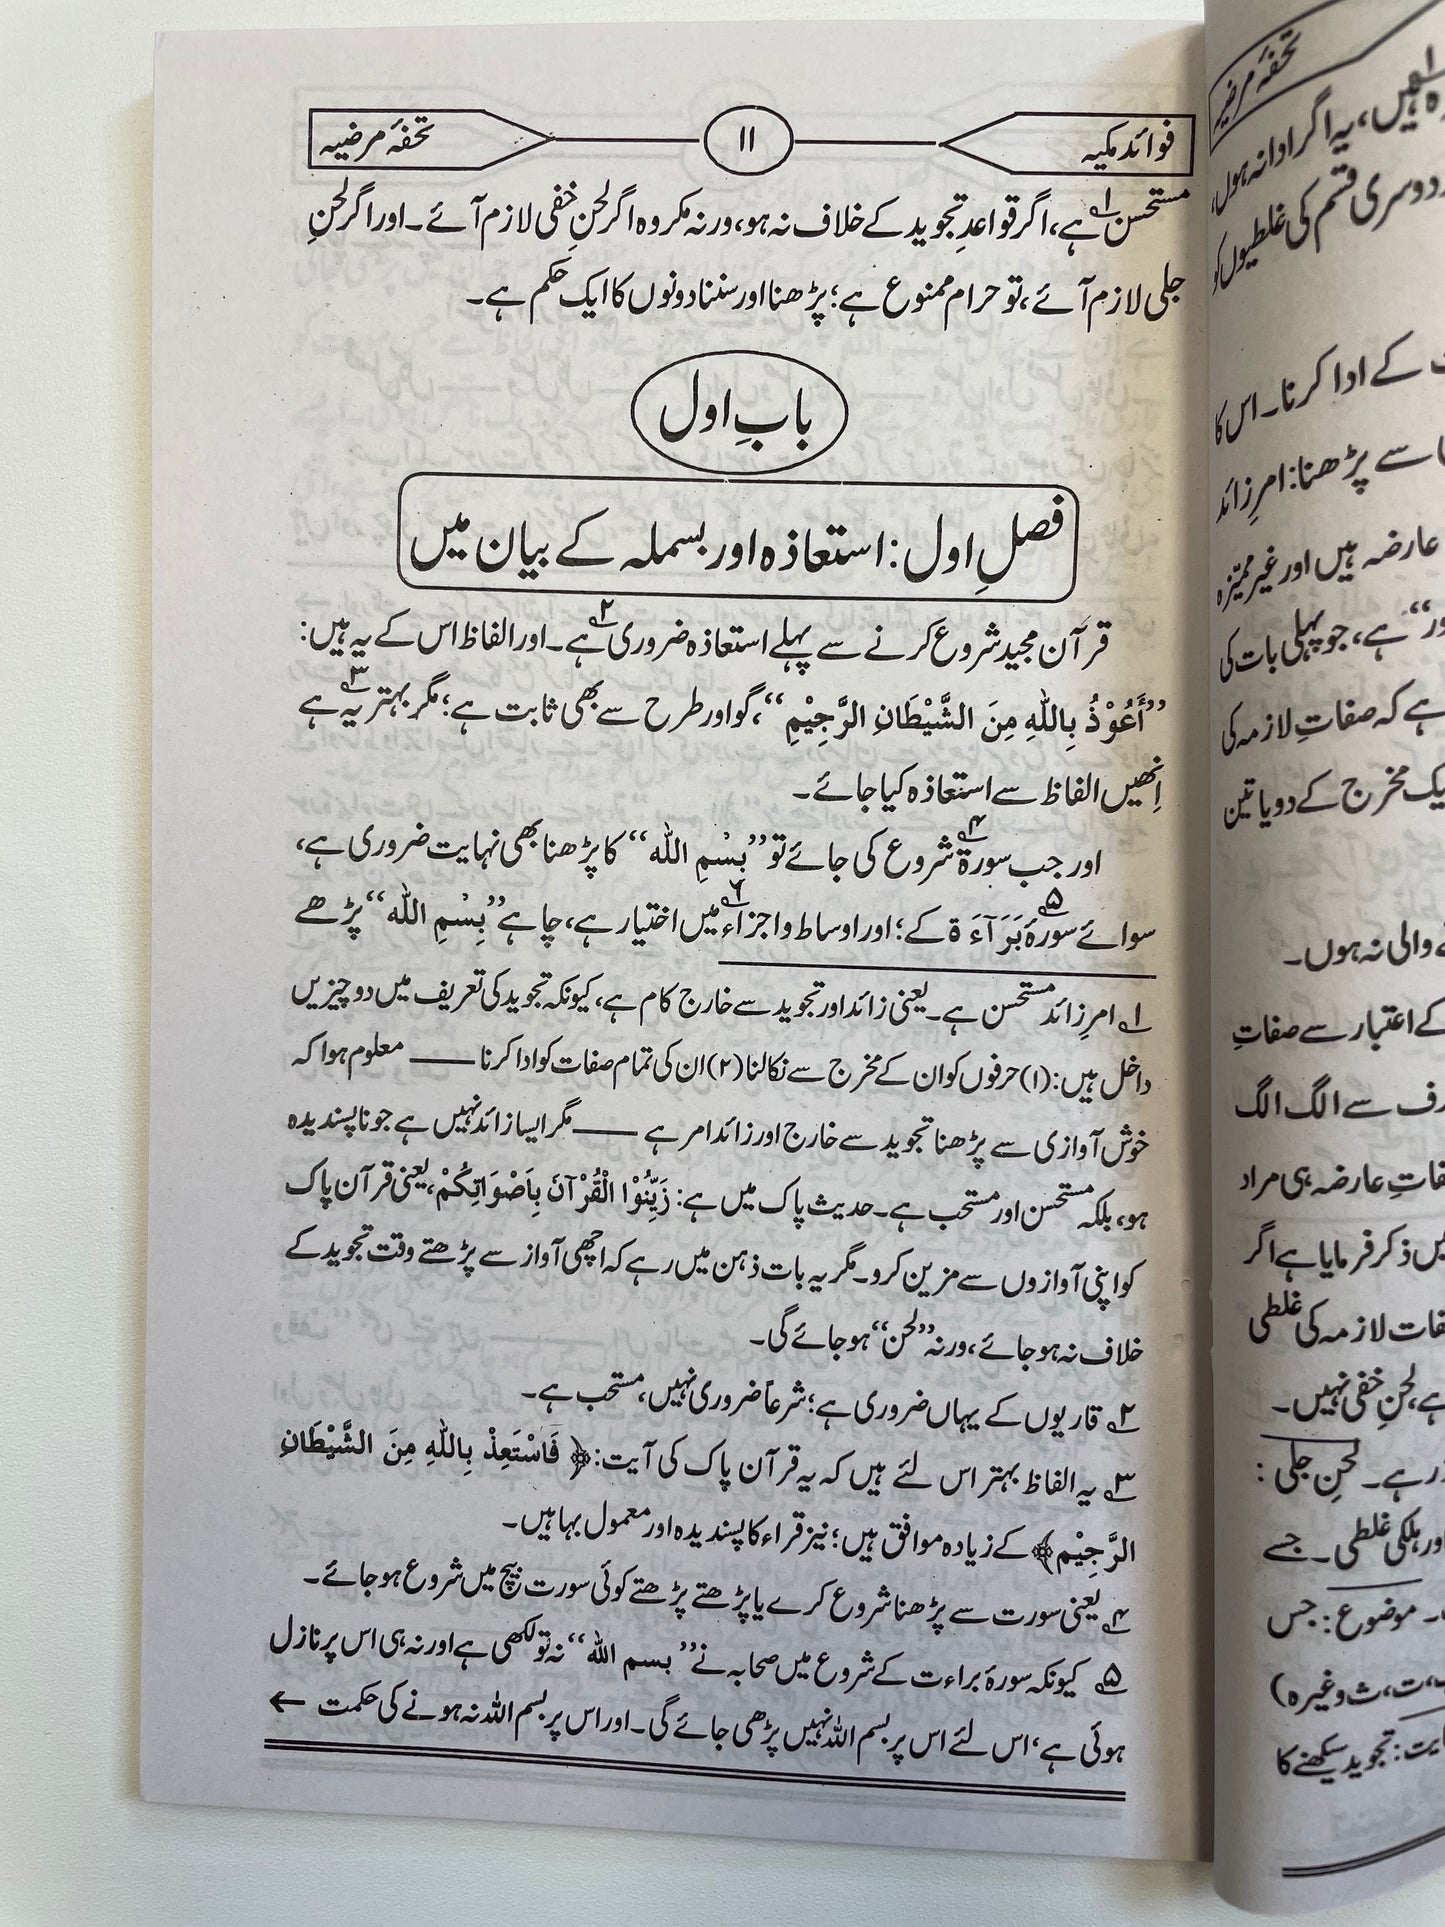 فوائد مکیہ ۱۱ تحفۂ مرضیہ
مستحسن۱؎ ہے، اگر قواعدِ تجوید کے خلاف نہ ہو، ورنہ مکروہ اگر لحنِ خفی لازم آئے۔ اور اگر لحنِ
جلی لازم آئے، تو حرام ممنوع ہے؛ پڑھنا اور سننا دونوں کا ایک حکم ہے۔
بابِ اول
فصلِ اول: استعاذہ اور بسملہ کے بیان میں
قرآن مجید شروع کرنے سے پہلے استعاذہ ضروری۲؎ ہے۔ اور الفاظ اس کے یہ ہیں:
”أَعُوْذُ بِاللّٰهِ مِنَ الشَّيْطَانِ الرَّجِيْمِ“، گو اور طرح سے بھی ثابت ہے؛ مگر بہتر یہ۳؎ ہے
اِنھیں الفاظ سے استعاذہ کیا جائے۔
اور جب سورۃ۴؎ شروع کی جائے تو ”بِسْمِ اللّٰه“ کا پڑھنا بھی نہایت ضروری ہے،
سوائے سورۂ۵؎ بَرَآءَۃ کے؛ اور اوساط و اجزاء۶؎ میں اختیار ہے، چاہے ”بِسْمِ اللّٰه“ پڑھے
۱؎ امرِ زائد مستحسن ہے۔ یعنی زائد اور تجوید سے خارج کام ہے، کیونکہ تجوید کی تعریف میں دو چیزیں
داخل ہیں: (۱) حرفوں کو ان کے مخرج سے نکالنا (۲) ان کی تمام صفات کو ادا کرنا —— معلوم ہوا کہ
خوش آوازی سے پڑھنا تجوید سے خارج اور زائد امر ہے —— مگر ایسا زائد نہیں ہے جو ناپسندیدہ
ہو، بلکہ مستحسن اور مستحب ہے۔ حدیث پاک میں ہے: زَيِّنُوْا الْقُرْآنَ بِأَصْوَاتِكُمْ، یعنی قرآن پاک
کو اپنی آوازوں سے مزین کرو۔ مگر یہ بات ذہن میں رہے کہ اچھی آواز سے پڑھتے وقت تجوید کے
خلاف نہ ہو جائے، ورنہ ”لحن“ ہو جائے گی۔
۲؎ قاریوں کے یہاں ضروری ہے؛ شرعاً ضروری نہیں، مستحب ہے۔
۳؎ یہ الفاظ بہتر اس لئے ہیں کہ یہ قرآن پاک کی آیت: ﴿فَاسْتَعِذْ بِاللّٰهِ مِنَ الشَّيْطَانِ
الرَّجِيْم﴾ کے زیادہ موافق ہیں؛ نیز قراء کا پسندیدہ اور معمول بہا ہیں۔
۴؎ یعنی سورت سے پڑھنا شروع کرے یا پڑھتے پڑھتے کوئی سورت بیچ میں شروع ہو جائے۔
۵؎ کیونکہ سورۂ براءت کے شروع میں صحابہ نے ”بسم اللّٰه“ نہ تو لکھی ہے اور نہ ہی اس پر نازل
ہوئی ہے، اس لئے اس پر بسم اللہ نہیں پڑھی جائے گی۔ اور اس پر بسم اللہ نہ ہونے کی حکمت ←
تحفۂ مرضیہ
ہیں، یہ اگر ادا نہ ہوں،
دوسری قسم کی غلطیوں کو
کے ادا کرنا۔ اس کا
سے پڑھنا: امرِ زائد
عارضہ ہیں اور غیر ممیّزہ
ہے، جو پہلی بات کی
ہے کہ صفاتِ لازمہ کی
مخرج کے دو یا تین
والی نہ ہوں۔
کے اعتبار سے صفاتِ
سے الگ الگ
عارضہ ہی مراد
ذکر فرمایا ہے اگر
لازمہ کی غلطی
ہے، لحنِ خفی نہیں۔
رہے۔ لحنِ جلی:
ہلکی غلطی۔ جسے
موضوع: جس
ت، ث وغیرہ)
تجوید سیکھنے کا